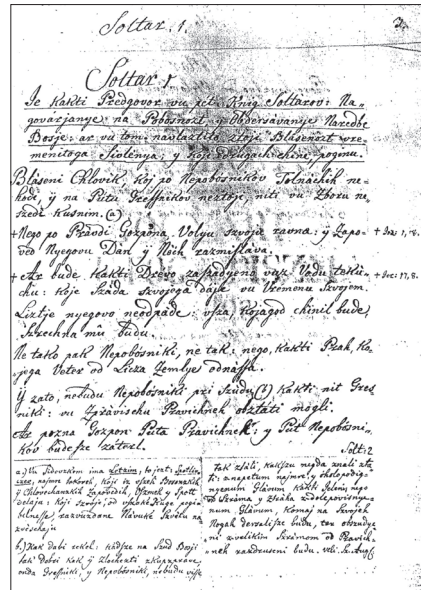 Soltar. 1. 3.
Soltar 1
Je kakti Predgovor vu pet Knig Soltarov: Na-
govarjanye na Pobosnozt, y obdersavanye Naredbe
Bosje: ar vu tom naulaztito ztoji Blasenozt vre-
menitoga Sivlenya; y koji drugach chine, poginu.
Blaseni Chlovik, koj po Nepobosnikov Tolnachih ne-
hodi, y na Putu Gressnikov neztoji, niti vu Zboru ne-
szedi kusnim. (a)
+ Nego po Pravdi Gozpona Volyu szvoju ravna: y Zapo- + Joz: 1, 8.
ved Nyegovu Dan y Noch razmislava.
+ Ar bude, kakti Drevo zaszadyeno vuz Vodu teku- + Jer: 17, 8.
chu: koje Szada szvojega daje vu Vremenu szvojem.
Liztje nyegovo neodpade: vsza, kojagod chinil bude,
szrechna mu budu.
Ne tako pak Nepobosniki, ne tak: nego, kakti Prah, ko-
jega Veter od Licza Zemlye odnassa.
Y zato, nebudu Nepobosniki pri Szudu (b) kakti nit Gres-
niki: vu Zpravischu Pravichneh obztati mogli.
Ar pozna Gozpon Puta Pravichneh: y Put Nepobosni-
kov budesze zaterl.
Solt: 2
a.) Vu Sidovzkom ima
najmre takoveh, koji iz vszeh Bosanzkeh
y Chlovechanzkeh Zapovedih, Osmek y Spott
delaju:
razvuzdane Navuke Szvetu na-
zvischaju
b.) Kak dabi rekel: kadsze na Szud Bosji
tak Dobri kak y Zlochezti zkupzprave,
onda Gressniki, y Nepobosniki, nebudu visse
tak ztali, kakszu negda znali zta-
ti: z napetum najmre, y
Glavum: kakti Jelenj, nego
z Sztrama y Ztraha z dolepovisnye-
num Glavum, komaj na szvojeh
Nogah dersalisze budu, ter obszudye-
ni z velikim Szramom od Pravich-
neh razdruseni budu. veli Sz. Aug: